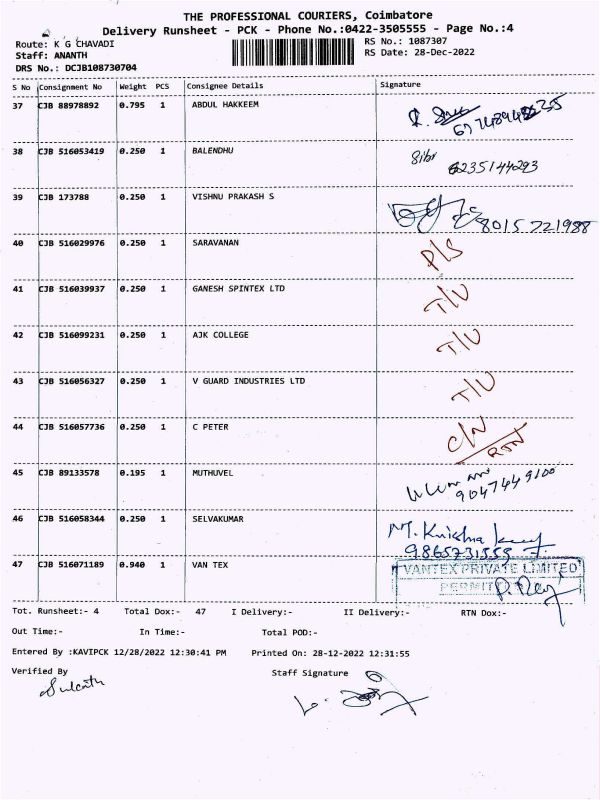 THE PROFESSIONAL COURIERS, Coimbatore
Delivery Runsheet - PCK - Phone No.:0422-3505555 - Page No.:4
Route: K G CHAVADI
Staff: ANANTH
DRS No.: DCJB108730704
RS No.: 1087307
RS Date: 28-Dec-2022
S No Consignment No Weight PCS Consignee Details Signature
37 CJB 88978892 0.795 1 ABDUL HAKKEEM
38 CJB 516053419 0.250 1 BALENDHU
6235144293
39 CJB 173788 0.250 1 VISHNU PRAKASH S
8015721988
40 CJB 516029976 0.250 1 SARAVANAN P/S
41 CJB 516039937 0.250 1 GANESH SPINTEX LTD T/U
42 CJB 516099231 0.250 1 AJK COLLEGE T/U
43 CJB 516056327 0.250 1 V GUARD INDUSTRIES LTD T/U
44 CJB 516057736 0.250 1 C PETER C/N
RTN
45 CJB 89133578 0.195 1 MUTHUVEL
9047449100
46 CJB 516058344 0.250 1 SELVAKUMAR M. Krishna
9865731555
47 CJB 516071189 0.940 1 VAN TEX VANTEX PRIVATE LIMITED
Tot. Runsheet:- 4 Total Dox:- 47 I Delivery:- II Delivery:- RTN Dox:-
Out Time:- In Time:- Total POD:-
Entered By :KAVIPCK 12/28/2022 12:30:41 PM Printed On: 28-12-2022 12:31:55
Verified By Staff Signature